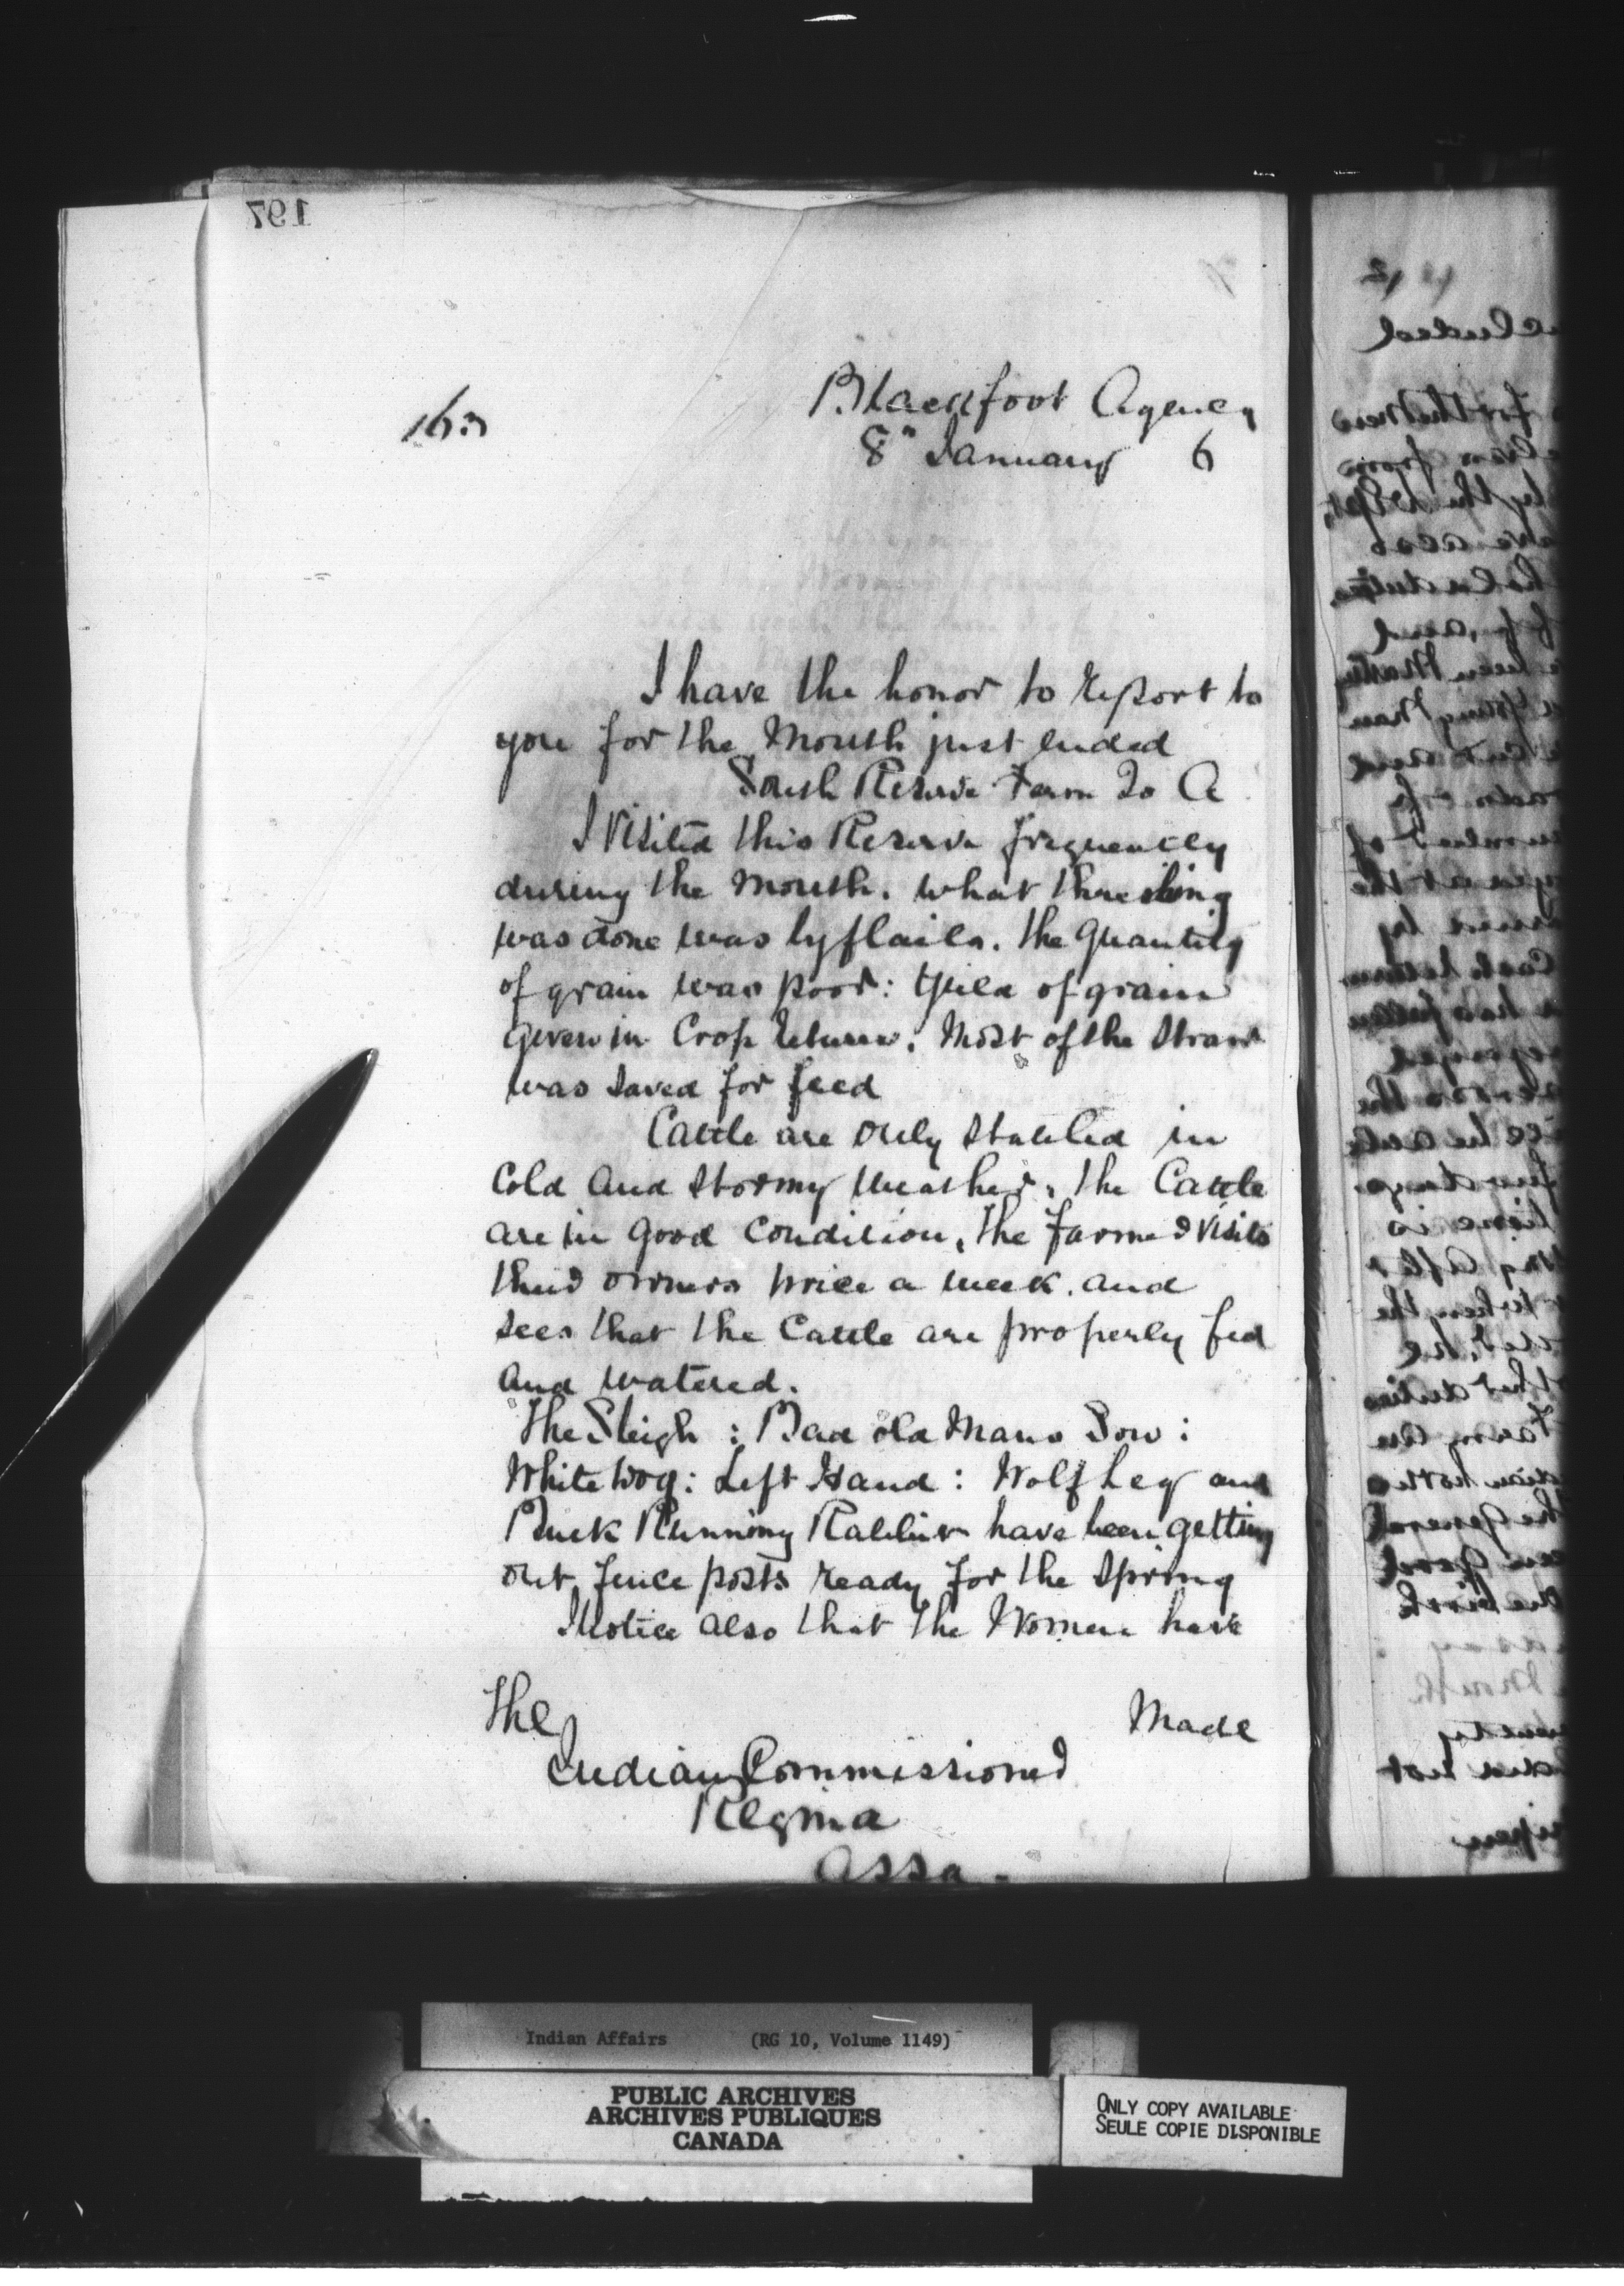 197
163
Blackfoot Agency
8" January 6
I have the honor to report to
you for the Month just ended
South Reserve Farm 20 A
I visited this Reserve frequently
during the Month. What threshing
was done was by flails. The Quantity
of grain was poor: Yield of grain
given in Crop Return. Most of the Straw
was saved for feed
Cattle are only stabled in
Cold and Stormy weather, the Cattle
are in good condition, the Farmer visits
their owners twice a week. and
sees that the Cattle are properly fed
and watered.
The Sleigh : Bad old Mans Son :
White Dog : Left Hand : Wolf Leg and
Buck Running Rabbit have been getting
out fence posts ready for the Spring
I Notice also that the Women have
Made
The
Indian Commissioner
Regina
Assa -
Indian Affairs (RG 10, Volume 1149)
PUBLIC ARCHIVES
ARCHIVES PUBLIQUES
CANADA
ONLY COPY AVAILABLE
SEULE COPIE DISPONIBLE